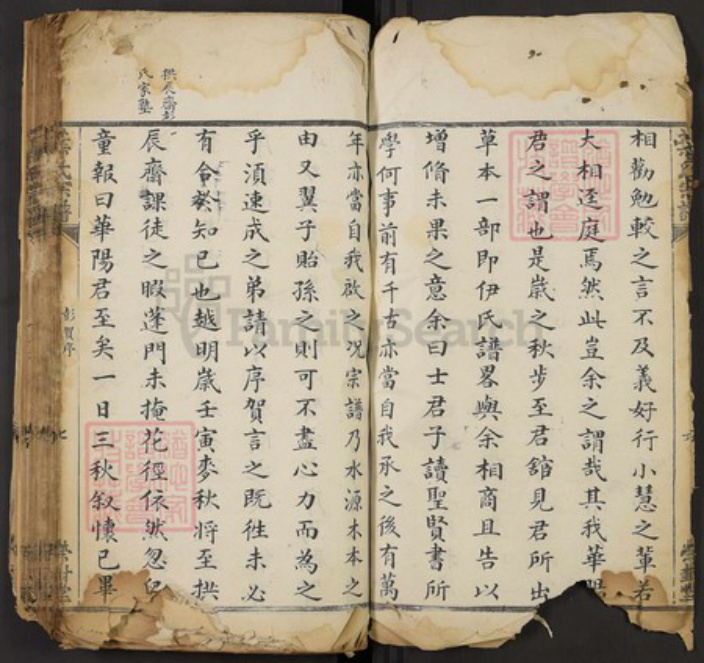 相勸勉較之言不及義好行小慧之輩若
大相逕庭焉然此豈余之謂哉其我華陽
君之謂也是嵗之秋步至君舘見君所出
草本一部即伊氏譜畧與余相商且告以
增脩未果之意余曰士君子讀聖賢書所
學何事前有千古亦當自我承之後有萬
年亦當自我啟之况宗譜乃水源木本之
由又翼子貽孫之則可不盡心力而為之
乎須速成之弟請以序賀言之既徃未必
有合癸知已也越明嵗壬寅麥秋將至拱
辰齋課徒之暇蓬門未掩花徑依然忽
童報曰華陽君至矣一日三秋叙懷已畢
拱辰齋彭
氏家塾
彭賀序
FamilySearch